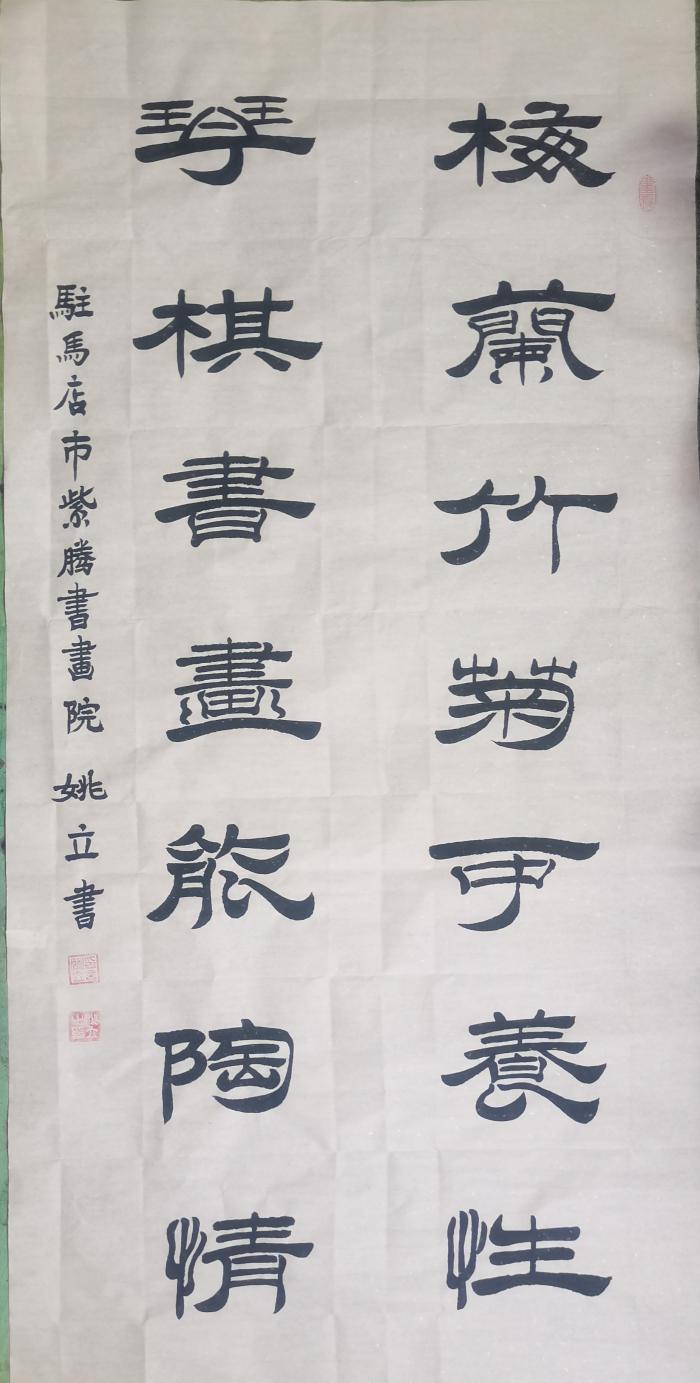 梅蘭竹菊可養性
琴棋書畫能陶情
駐馬店市紫騰書畫院 姚立書